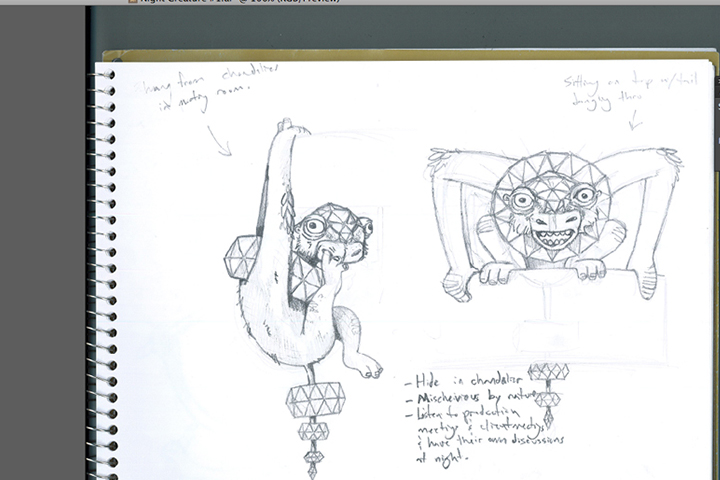 Night Creature #1.ai* @ 100% (RGB/Preview)
hang from chandelier
in meeting room.
Sitting on top w/ tail
hanging thru
- Hide in chandelier
- Mischeivous by nature
- Listen to production
meetings & client meetings
& have their own discussions
at night.